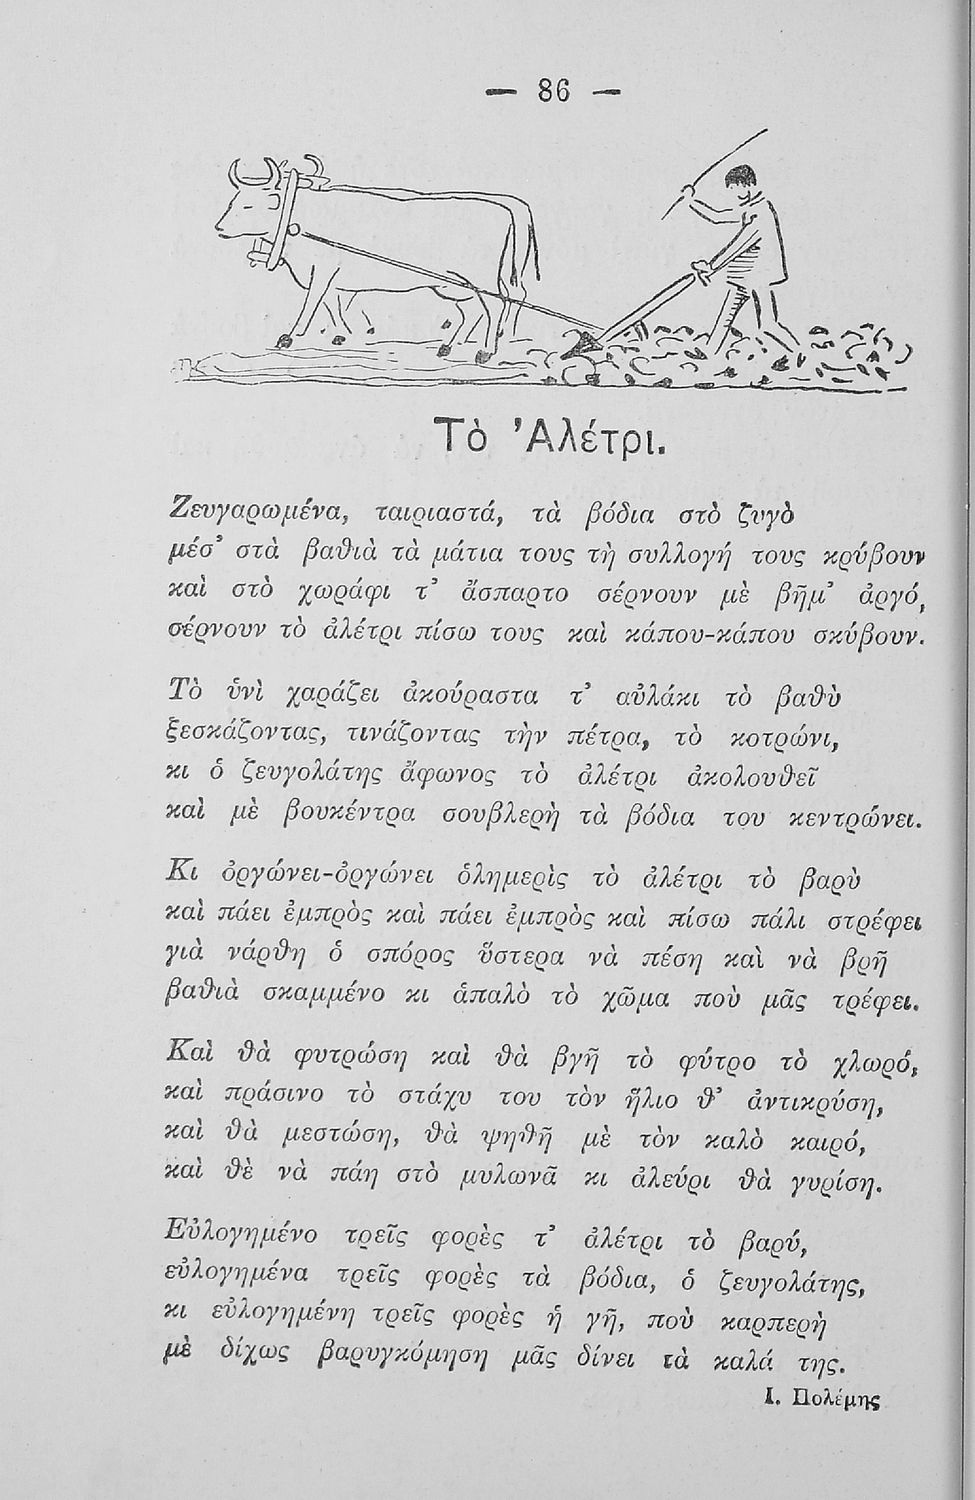 — 86 —
Τὸ Ἀλέτρι.
Ζευγαρωμένα, ταιριαστά, τὰ βόδια στὸ ζυγὸ
μέσ' στὰ βαθιὰ τὰ μάτια τους τὴ συλλογή τους κρύβουν
καὶ στὸ χωράφι τ' ἄσπαρτο σέρνουν μὲ βῆμ' ἀργό,
σέρνουν τὸ ἀλέτρι πίσω τους καὶ κάπου-κάπου σκύβουν.
Τὸ ὑνὶ χαράζει ἀκούραστα τ' αὐλάκι τὸ βαθὺ
ξεσκάζοντας, τινάζοντας τὴν πέτρα, τὸ κοτρώνι,
κι ὁ ζευγολάτης ἄφωνος τὸ ἀλέτρι ἀκολουθεῖ
καὶ μὲ βουκέντρα σουβλερὴ τὰ βόδια του κεντρώνει.
Κι ὀργώνει-ὀργώνει ὁλημερὶς τὸ ἀλέτρι τὸ βαρὺ
καὶ πάει ἐμπρὸς καὶ πάει ἐμπρὸς καὶ πίσω πάλι στρέφει
γιὰ νάρθη ὁ σπόρος ὕστερα νὰ πέση καὶ νὰ βρῆ
βαθιὰ σκαμμένο κι ἁπαλὸ τὸ χῶμα ποὺ μᾶς τρέφει.
Καὶ θὰ φυτρώση καὶ θὰ βγῆ τὸ φύτρο τὸ χλωρό,
καὶ πράσινο τὸ στάχυ του τὸν ἥλιο θ' ἀντικρύση,
καὶ θὰ μεστώση, θὰ ψηθῆ μὲ τὸν καλὸ καιρό,
καὶ θὲ νὰ πάη στὸ μυλωνᾶ κι ἀλεύρι θὰ γυρίση.
Εὐλογημένο τρεῖς φορὲς τ' ἀλέτρι τὸ βαρύ,
εὐλογημένα τρεῖς φορὲς τὰ βόδια, ὁ ζευγολάτης,
κι εὐλογημένη τρεῖς φορὲς ἡ γῆ, ποὺ καρπερὴ
μὲ δίχως βαρυγκόμηση μᾶς δίνει τὰ καλά της.
Ι. Πολέμης